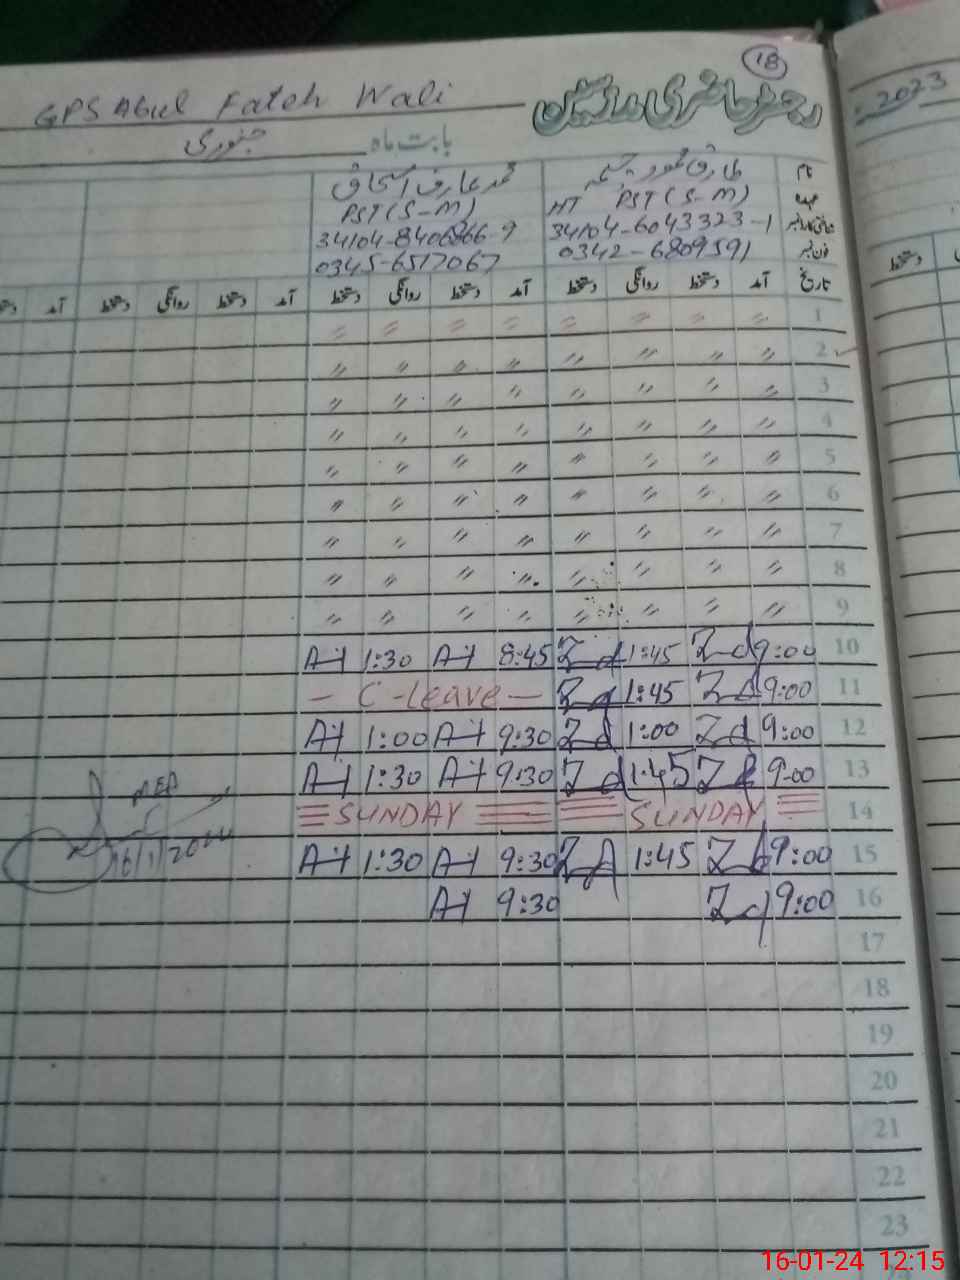 18
GPS Abul Fateh Wali
رجسٹر حاضری مدرسین
بابت ماہ جنوری
2023
نام طارق محمود محمد عارف اسحاق
عہدہ HT PST (S-M) PST (S-M)
34104-6043323-1 34104-8406866-9
فون نمبر 0342-6809591 0345-6517067
تاریخ آمد دستخط روانگی دستخط آمد دستخط روانگی دستخط آمد دستخط روانگی دستخط آمد
دستخط
1 〃 〃 〃 〃 〃 〃 〃 〃
2 〃 〃 〃 〃 〃 〃 〃 〃
3 〃 〃 〃 〃 〃 〃 〃 〃
4 〃 〃 〃 〃 〃 〃 〃 〃
5 〃 〃 〃 〃 〃 〃 〃 〃
6 〃 〃 〃 〃 〃 〃 〃 〃
7 〃 〃 〃 〃 〃 〃 〃 〃
8 〃 〃 〃 〃 〃 〃 〃 〃
9 〃 〃 〃 〃 〃 〃 〃 〃
10 9:00 1:45 8:45 1:30
11 9:00 1:45 - C-leave -
12 9:00 1:00 9:30 1:00
13 9:00 1:45 9:30 1:30
14 SUNDAY SUNDAY
15 9:00 1:45 9:30 1:30
16 9:00 9:30
MEA
16/1/2024
17
18
19
20
21
22
23
16-01-24 12:15